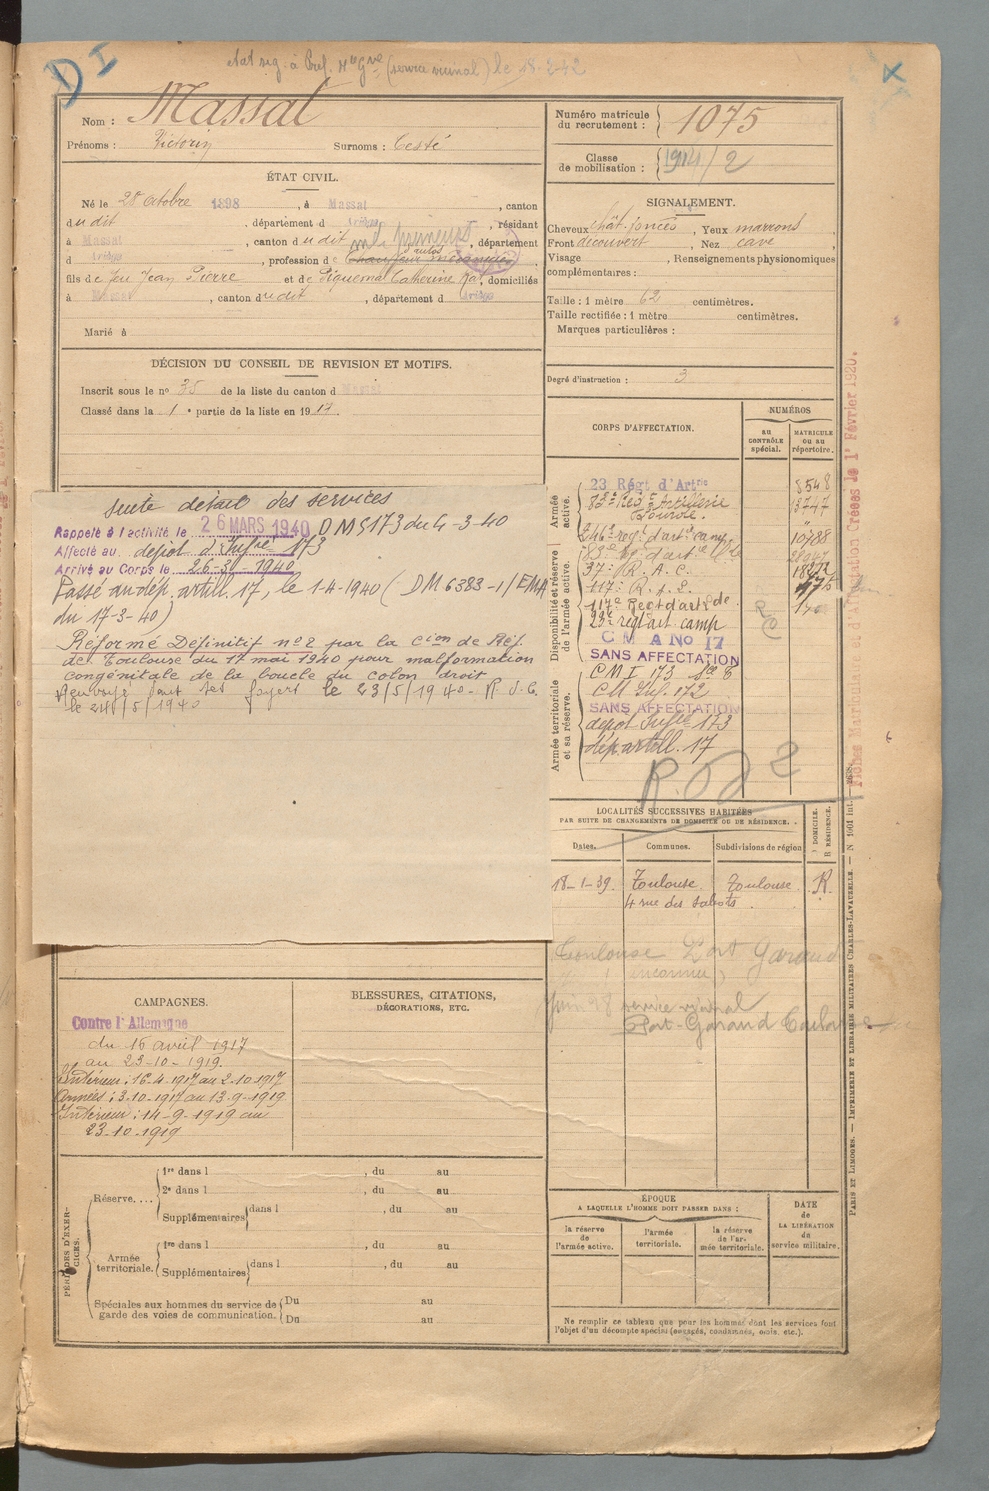 D I
Etat sig. à Préf. Hte Gne (service vicinal) le 18-3-42
Nom : Massat
Prénoms : Victorin Surnoms : Testé
ÉTAT CIVIL.
Né le 28 Octobre 1898, à Massat, canton
dudit, département d Ariège, résidant
à Massat, canton dudit, département
d Ariège, profession de Chauffeur mécanicien
fils de feu Jean Pierre et de Piquemal Catherine, domiciliés
à Massat, canton dudit, département d Ariège
Marié à
DÉCISION DU CONSEIL DE REVISION ET MOTIFS.
Inscrit sous le no 35 de la liste du canton d Massat
Classé dans la 1e partie de la liste en 1917.
suite détail des services
Rappelé à l'activité le 26 MARS 1940 DM 5173 du 4-3-40
Affecté au dépôt d'Infrie 173
Arrivé au Corps le 26-3-1940
Passé au dép. artill. 17, le 1-4-1940 (DM 6383-1/EMA
du 17-3-40)
Réformé Définitif no 2 par la Cion de Réf.
de Toulouse du 17 mai 1940 pour malformation
congénitale de la boucle du colon droit
Renvoyé dans ses foyers le 23/5/1940-
le 24/5/1940
CAMPAGNES.
Contre l'Allemagne
du 16 avril 1917
au 23-10-1919.
Intérieur : 16-4-1917 au 2-10-1917
Armées : 3-10-1917 au 13-9-1919
Intérieur : 14-9-1919 au
23-10-1919
BLESSURES, CITATIONS,
DÉCORATIONS, ETC.
PÉRIODES D'EXERCICES.
Réserve....
1re dans l , du au
2e dans l , du au
Supplémentaires dans l , du au
Armée
territoriale.
1re dans l , du au
Supplémentaires dans l , du au
Spéciales aux hommes du service de
garde des voies de communication.
Du au
Du au
Numéro matricule
du recrutement : 1075
Classe
de mobilisation : 1914/2
SIGNALEMENT.
Cheveux chât. foncés, Yeux marrons
Front découvert, Nez cave
Visage , Renseignements physionomiques
complémentaires :
Taille : 1 mètre 62 centimètres.
Taille rectifiée : 1 mètre centimètres.
Marques particulières :
Degré d'instruction : 3
CORPS D'AFFECTATION.
NUMÉROS
AU
CONTRÔLE
spécial.
MATRICULE
OU AU
répertoire.
Armée
active.
Disponibilité et réserve
de l'armée active.
Armée territoriale
et sa réserve.
23 Régt d'Artrie 8548
82e Reg Artillerie 13747
Lourde.
246e reg. d'art. camp. 10788
37e R. A. C.
117e R. A. L.
117e Régt d'art. de
23e regt art. camp
C M A No 17
SANS AFFECTATION
C M I 173
CM Inf. 172
SANS AFFECTATION
dépôt Infie 173
dép. artill. 17
R.D 2
LOCALITÉS SUCCESSIVES HABITÉES
PAR SUITE DE CHANGEMENTS DE DOMICILE OU DE RÉSIDENCE.
Dates. Communes. Subdivisions de région
D DOMICILE.
R RÉSIDENCE.
18-1-39. Toulouse Toulouse. R.
4 rue des Sabots
Toulouse Port Garaud
(inconnu)
service vicinal
Port-Garaud Toulouse
ÉPOQUE
A LAQUELLE L'HOMME DOIT PASSER DANS :
la réserve
de
l'armée active.
l'armée
territoriale.
la réserve
de l'armée territoriale.
DATE
de
LA LIBÉRATION
du
service militaire.
Ne remplir ce tableau que pour les hommes dont les services font
l'objet d'un décompte spécial (engagés, condamnés, omis, etc.).
Fiches Matriculaire et d'Affectation Créées le 1er Février 1920.
PARIS ET LIMOGES. — IMPRIMERIE ET LIBRAIRIE MILITAIRES CHARLES-LAVAUZELLE. — N 1001 int.